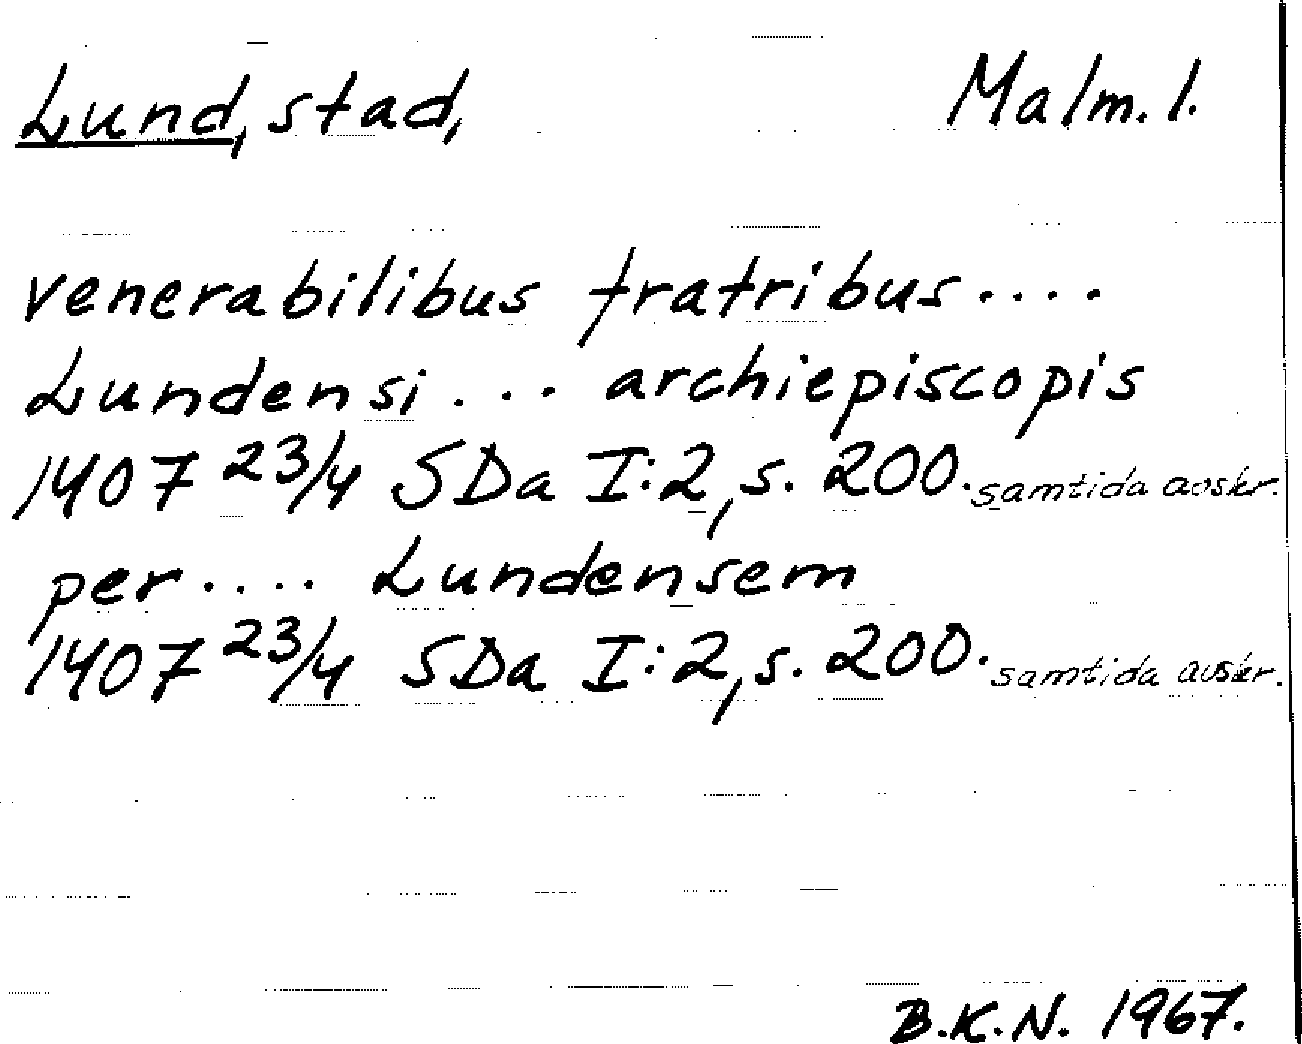 Lund, stad, Malm. l.
venerabilibus fratribus....
Lundensi... archiepiscopis
1407 23/4 SDa I:2, s. 200. samtida avskr.
per.... Lundensem
1407 23/4 SDa I:2, s. 200. samtida avskr.
B.K.N. 1967.